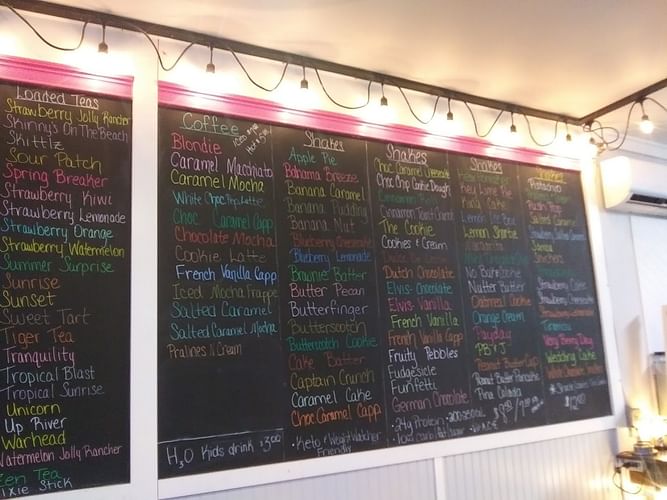 Loaded Teas
Strawberry Jolly Rancher
Skinny's On The Beach
Skittlz
Sour Patch
Spring Breaker
Strawberry Kiwi
Strawberry Lemonade
Strawberry Orange
Strawberry Watermelon
Summer Surprise
Sunrise
Sunset
Sweet Tart
Tiger Tea
Tranquility
Tropical Blast
Tropical Sunrise
Unicorn
Up River
Warhead
Watermelon Jolly Rancher
Zen Tea
Pixie Stick
Coffee
Blondie
Caramel Macchiato
Caramel Mocha
White Choc Pep Latte
Choc Caramel Capp
Chocolate Mocha
Cookie Latte
French Vanilla Capp
Iced Mocha Frappe
Salted Caramel
Salted Caramel Mocha
Pralines N Cream
H2O Kids drink $3.00
Shakes
Apple Pie
Bahama Breeze
Banana Caramel
Banana Pudding
Banana Nut
Blueberry Cheesecake
Blueberry Lemonade
Brownie Batter
Butter Pecan
Butterfinger
Butterscotch
Butterscotch Cookie
Cake Batter
Captain Crunch
Caramel Cake
Choc Caramel Capp
• Keto & Weight Watcher
Friendly
Shakes
Choc Caramel Cheesecake
Choc Chip Cookie Dough
Cinnamon Roll
Cinnamon Toast Crunch
The Cookie
Cookies & Cream
Dulce De Leche
Dutch Chocolate
Elvis-Chocolate
Elvis-Vanilla
French Vanilla
French Vanilla Capp
Fruity Pebbles
Fudgesicle
Funfetti
German Chocolate
• 24g Protein • 200-250cal
• low carb
Shakes
Key Lime Pie
Kings Cake
Lemon Ice Box
Lemon Shortie
Margarita
No Bake Cookie
Nutter Butter
Oatmeal Cookie
Orange Cream
Payday
PB & J
Peanut Butter Cup
Peanut Butter Pancake
Pina Colada
Shakes
Pistachio
Salted Caramel
Samoa
Snickers
Strawberry Cake
Strawberry Cheesecake
Tiramisu
Very Berry Dog
Wedding Cake